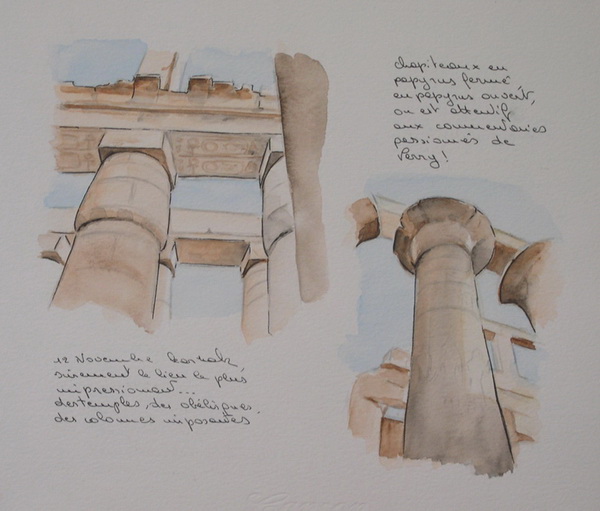 chapiteaux en
papyrus fermé,
en papyrus ouvert,
on est attentif
aux commentaires
passionnés de
Perry!
12 Novembre Karnak,
sûrement le lieu le plus
impressionnant...
des temples, des obélisques,
des colonnes imposantes